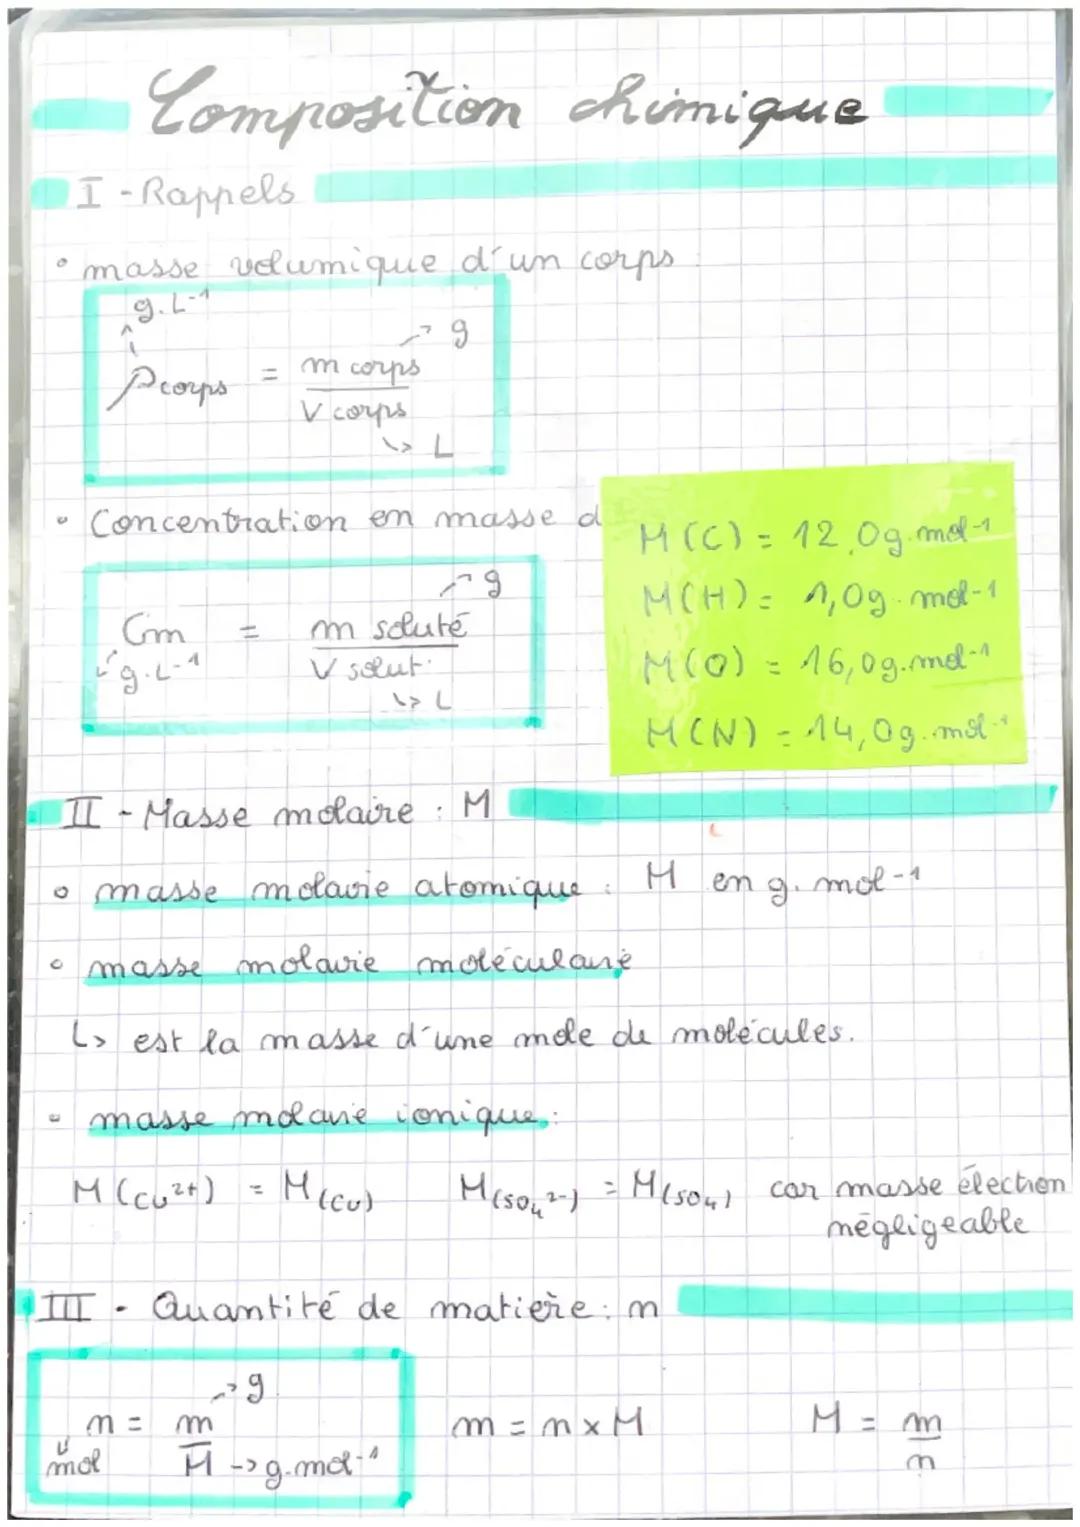 Composition chimique
I - Rappels
• masse volumique d'un corps
g.L-1
ρcorps = m corps / V corps
→ g
↳ L
• Concentration en masse d
Cm = m soluté / V solut.
→ g
g.L-1
↳ L
M(C) = 12,0g.mol-1
M(H) = 1,0g.mol-1
M(O) = 16,0g.mol-1
M(N) = 14,0g.mol-1
II - Masse molaire : M
• masse molaire atomique : M en g.mol-1
• masse molaire moléculaire
↳ est la masse d'une mole de molécules.
• masse molaire ionique :
M(Cu2+) = M(Cu) M(SO4 2-) = M(SO4) car masse électron
négligeable
III - Quantité de matière : n
→ g
n = m / M → g.mol-1
mol
m = n x M
M = m / n